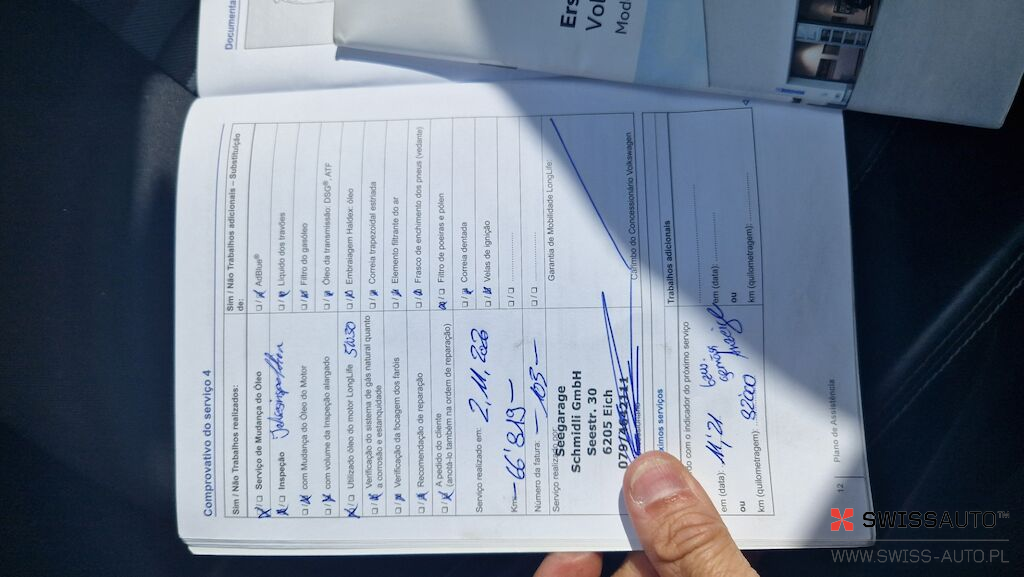 Documenta
Ers
Vol
Mod
Comprovativo do serviço 4
Sim / Não Trabalhos realizados:
Serviço de Mudança do Óleo
Inspeção
com Mudança do Óleo do Motor
com volume da Inspeção alargado
Utilizado óleo do motor LongLife
Verificação do sistema de gás natural quanto
a corrosão e estanquidade
Verificação da focagem dos faróis
Recomendação de reparação
A pedido do cliente
(anotá-lo também na ordem de reparação)
Serviço realizado em: 2,11,2023
Km: 66'819
Número da fatura: 103
Serviço realizado por:
Seegarage
Schmidli GmbH
Seestr. 30
6205 Eich
Sim / Não Trabalhos adicionais – Substituição
de:
AdBlue®
Líquido dos travões
Filtro do gasóleo
Óleo da transmissão: DSG®, ATF
Embraiagem Haldex: óleo
Correia trapezoidal estriada
Elemento filtrante do ar
Frasco de enchimento dos pneus (vedante)
Filtro de poeiras e pólen
Correia dentada
Velas de ignição
Garantia de Mobilidade LongLife:
Carimbo do Concessionário Volkswagen
ximos serviços
do com o indicador do próximo serviço
em (data):
ou
km (quilometragem):
Trabalhos adicionais
em (data):
ou
km (quilometragem):
12 Plano de Assistência
SWISSAUTO™
WWW.SWISS-AUTO.PL